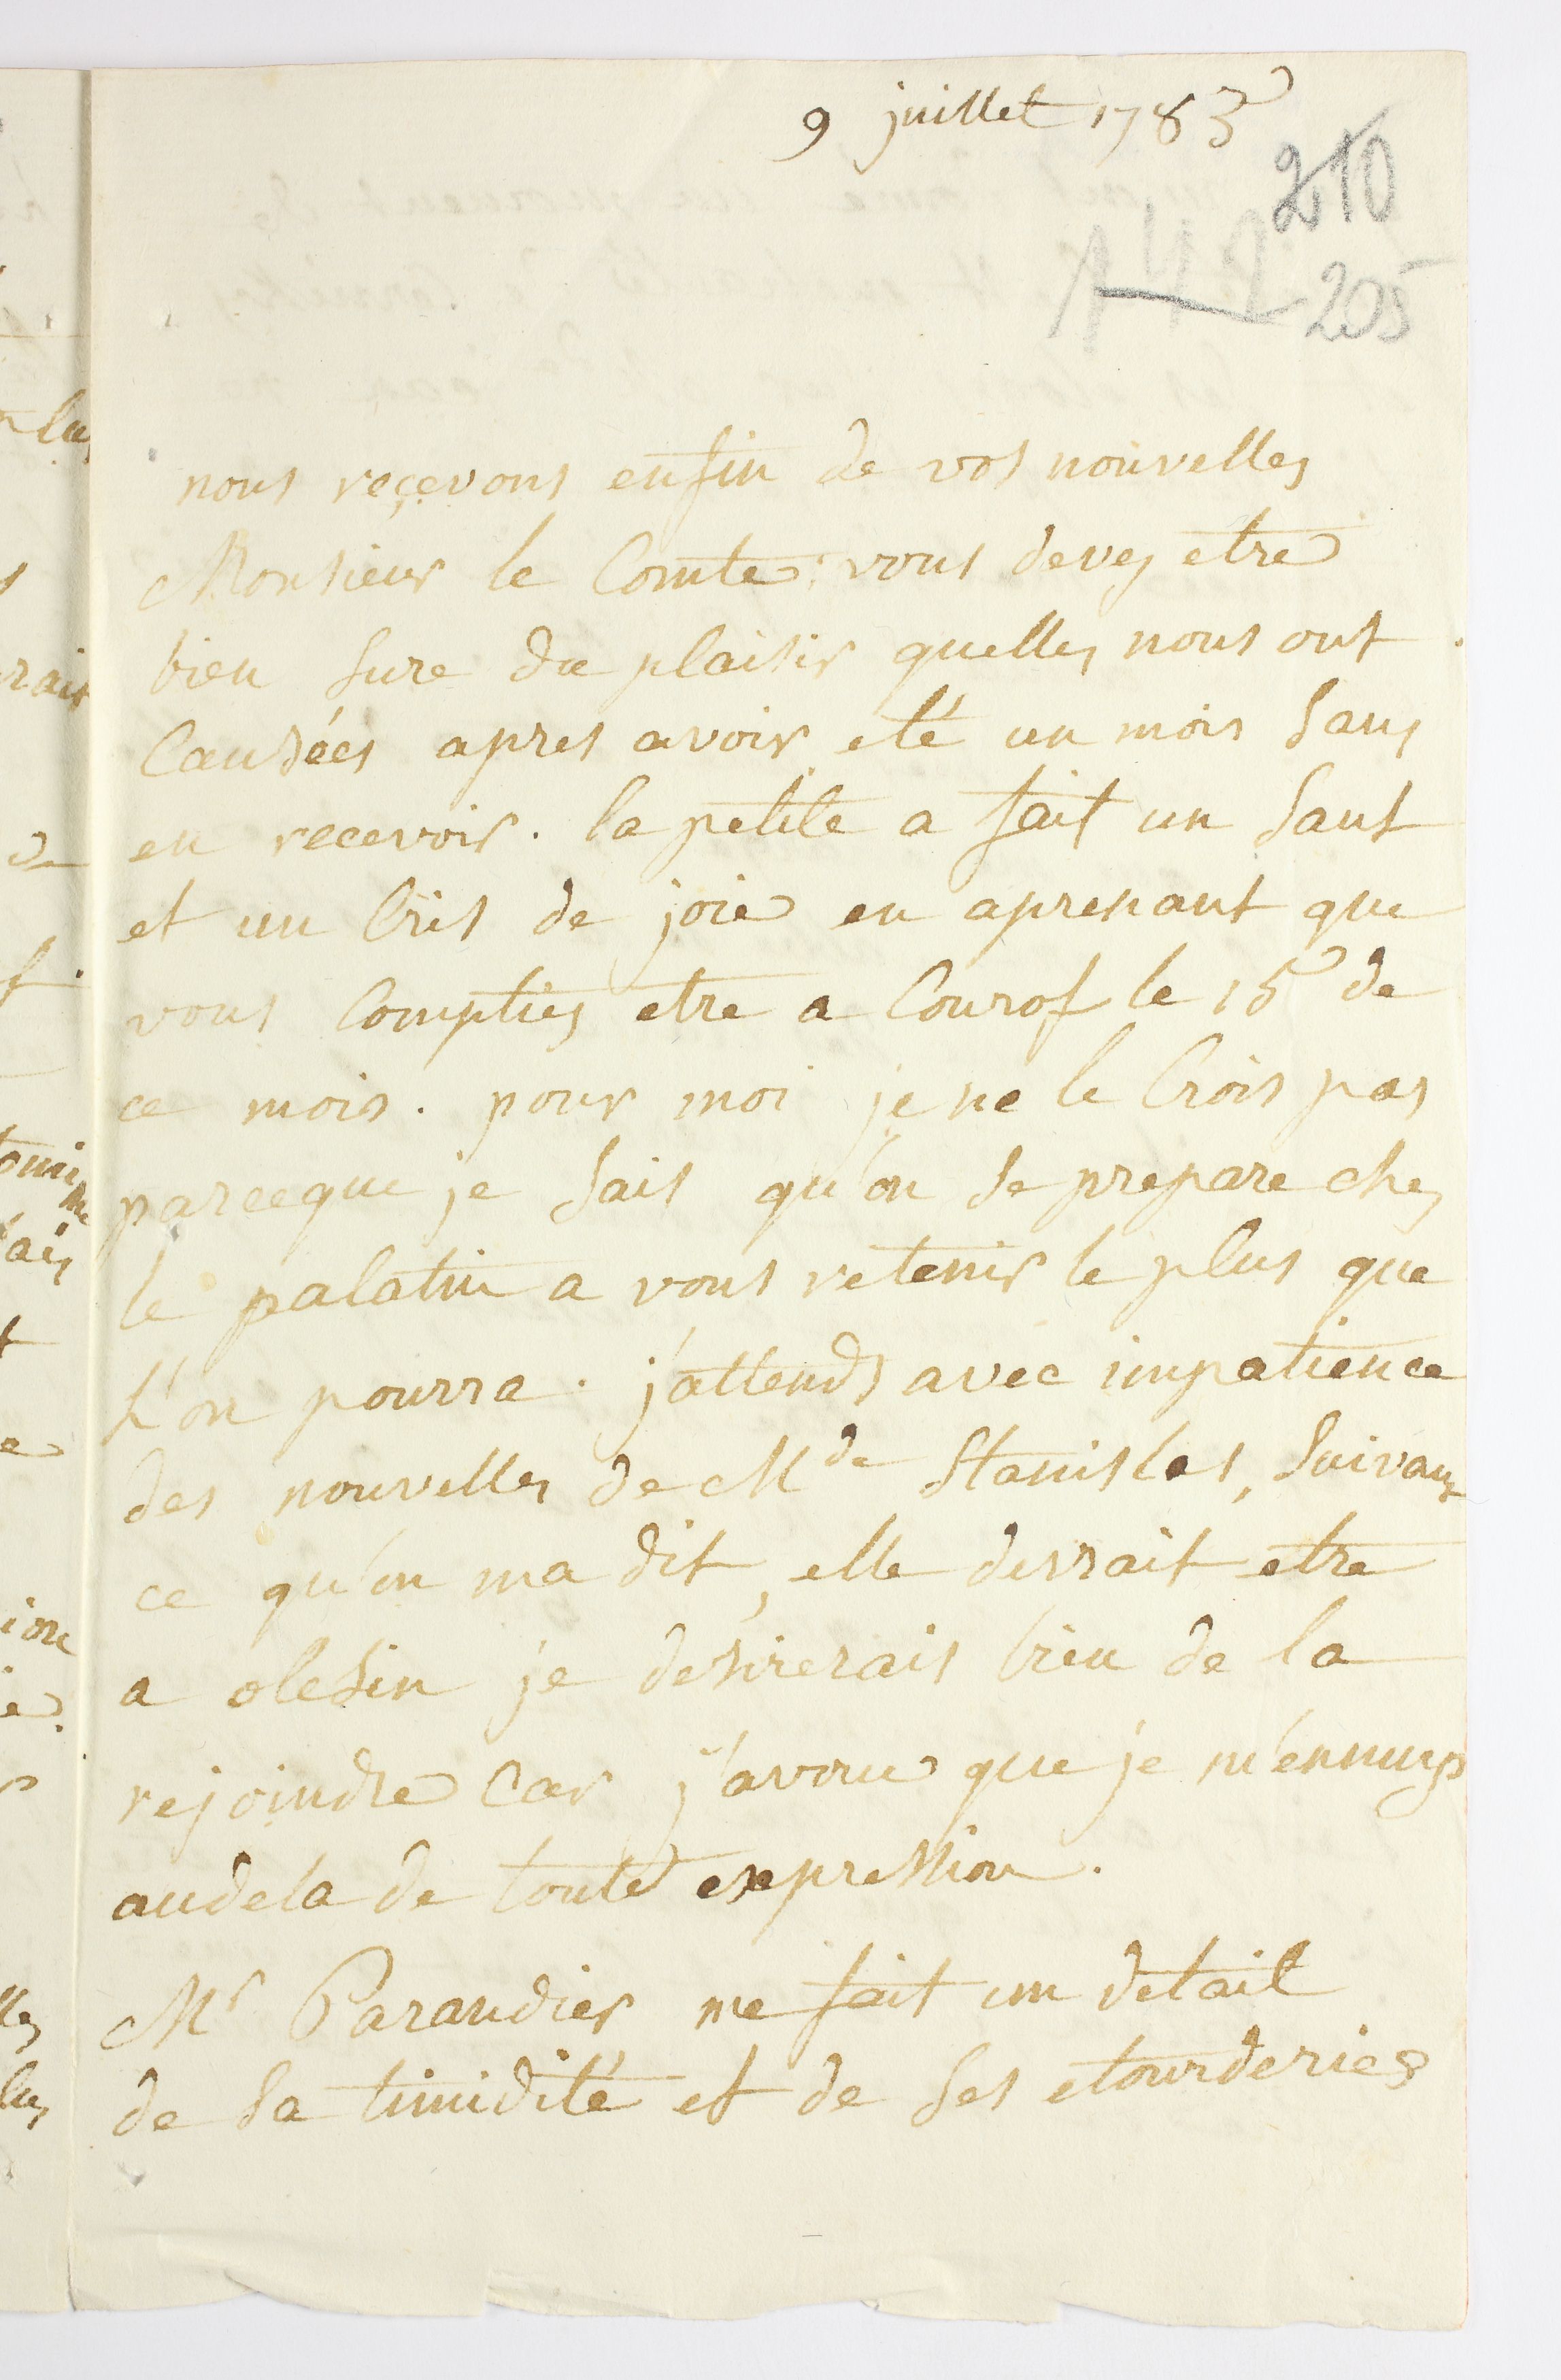 9 juillet 1783
210
142 205
nous reçevons enfin de vos nouvelles
Monsieur le Comte: vous devez etre
bien sure du plaisir quelles nous ont
Causées apres avoir eté un mois sans
en recevoir. la petite a fait un saut
et un Cris de joie en aprenant que
vous Comptiez etre a Courof le 15 de
ce mois. pour moi je ne le Crois pas
parceque je sais qu'on se prepare chez
le palatin a vous retenir le plus que
L'on pourra. j'attends avec impatience
des nouvelles de Mde Stanislas, suivant
ce qu'on ma dit, elle devrait etre
a olesin je desirerais bien de la
rejoindre Car j'avoue que je m'ennuys
audela de toute expression.
Mr Parandier me fait un detail
de sa timidité et de ses etourderies